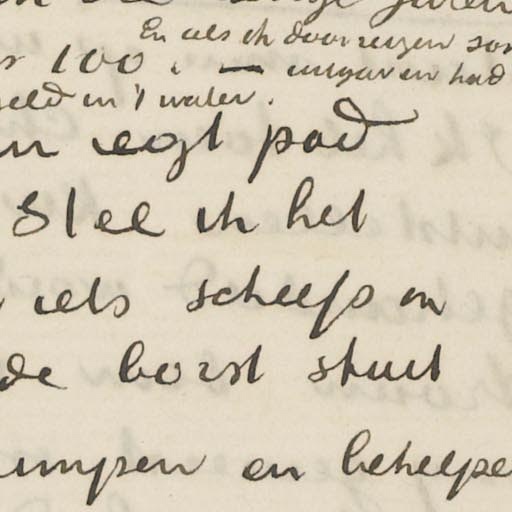 En als ik door reizen
100. — uitgaven had
geld in 't water.
en regt pad
Stel ik het
iets scheefs in
de borst stuit
en behelpe